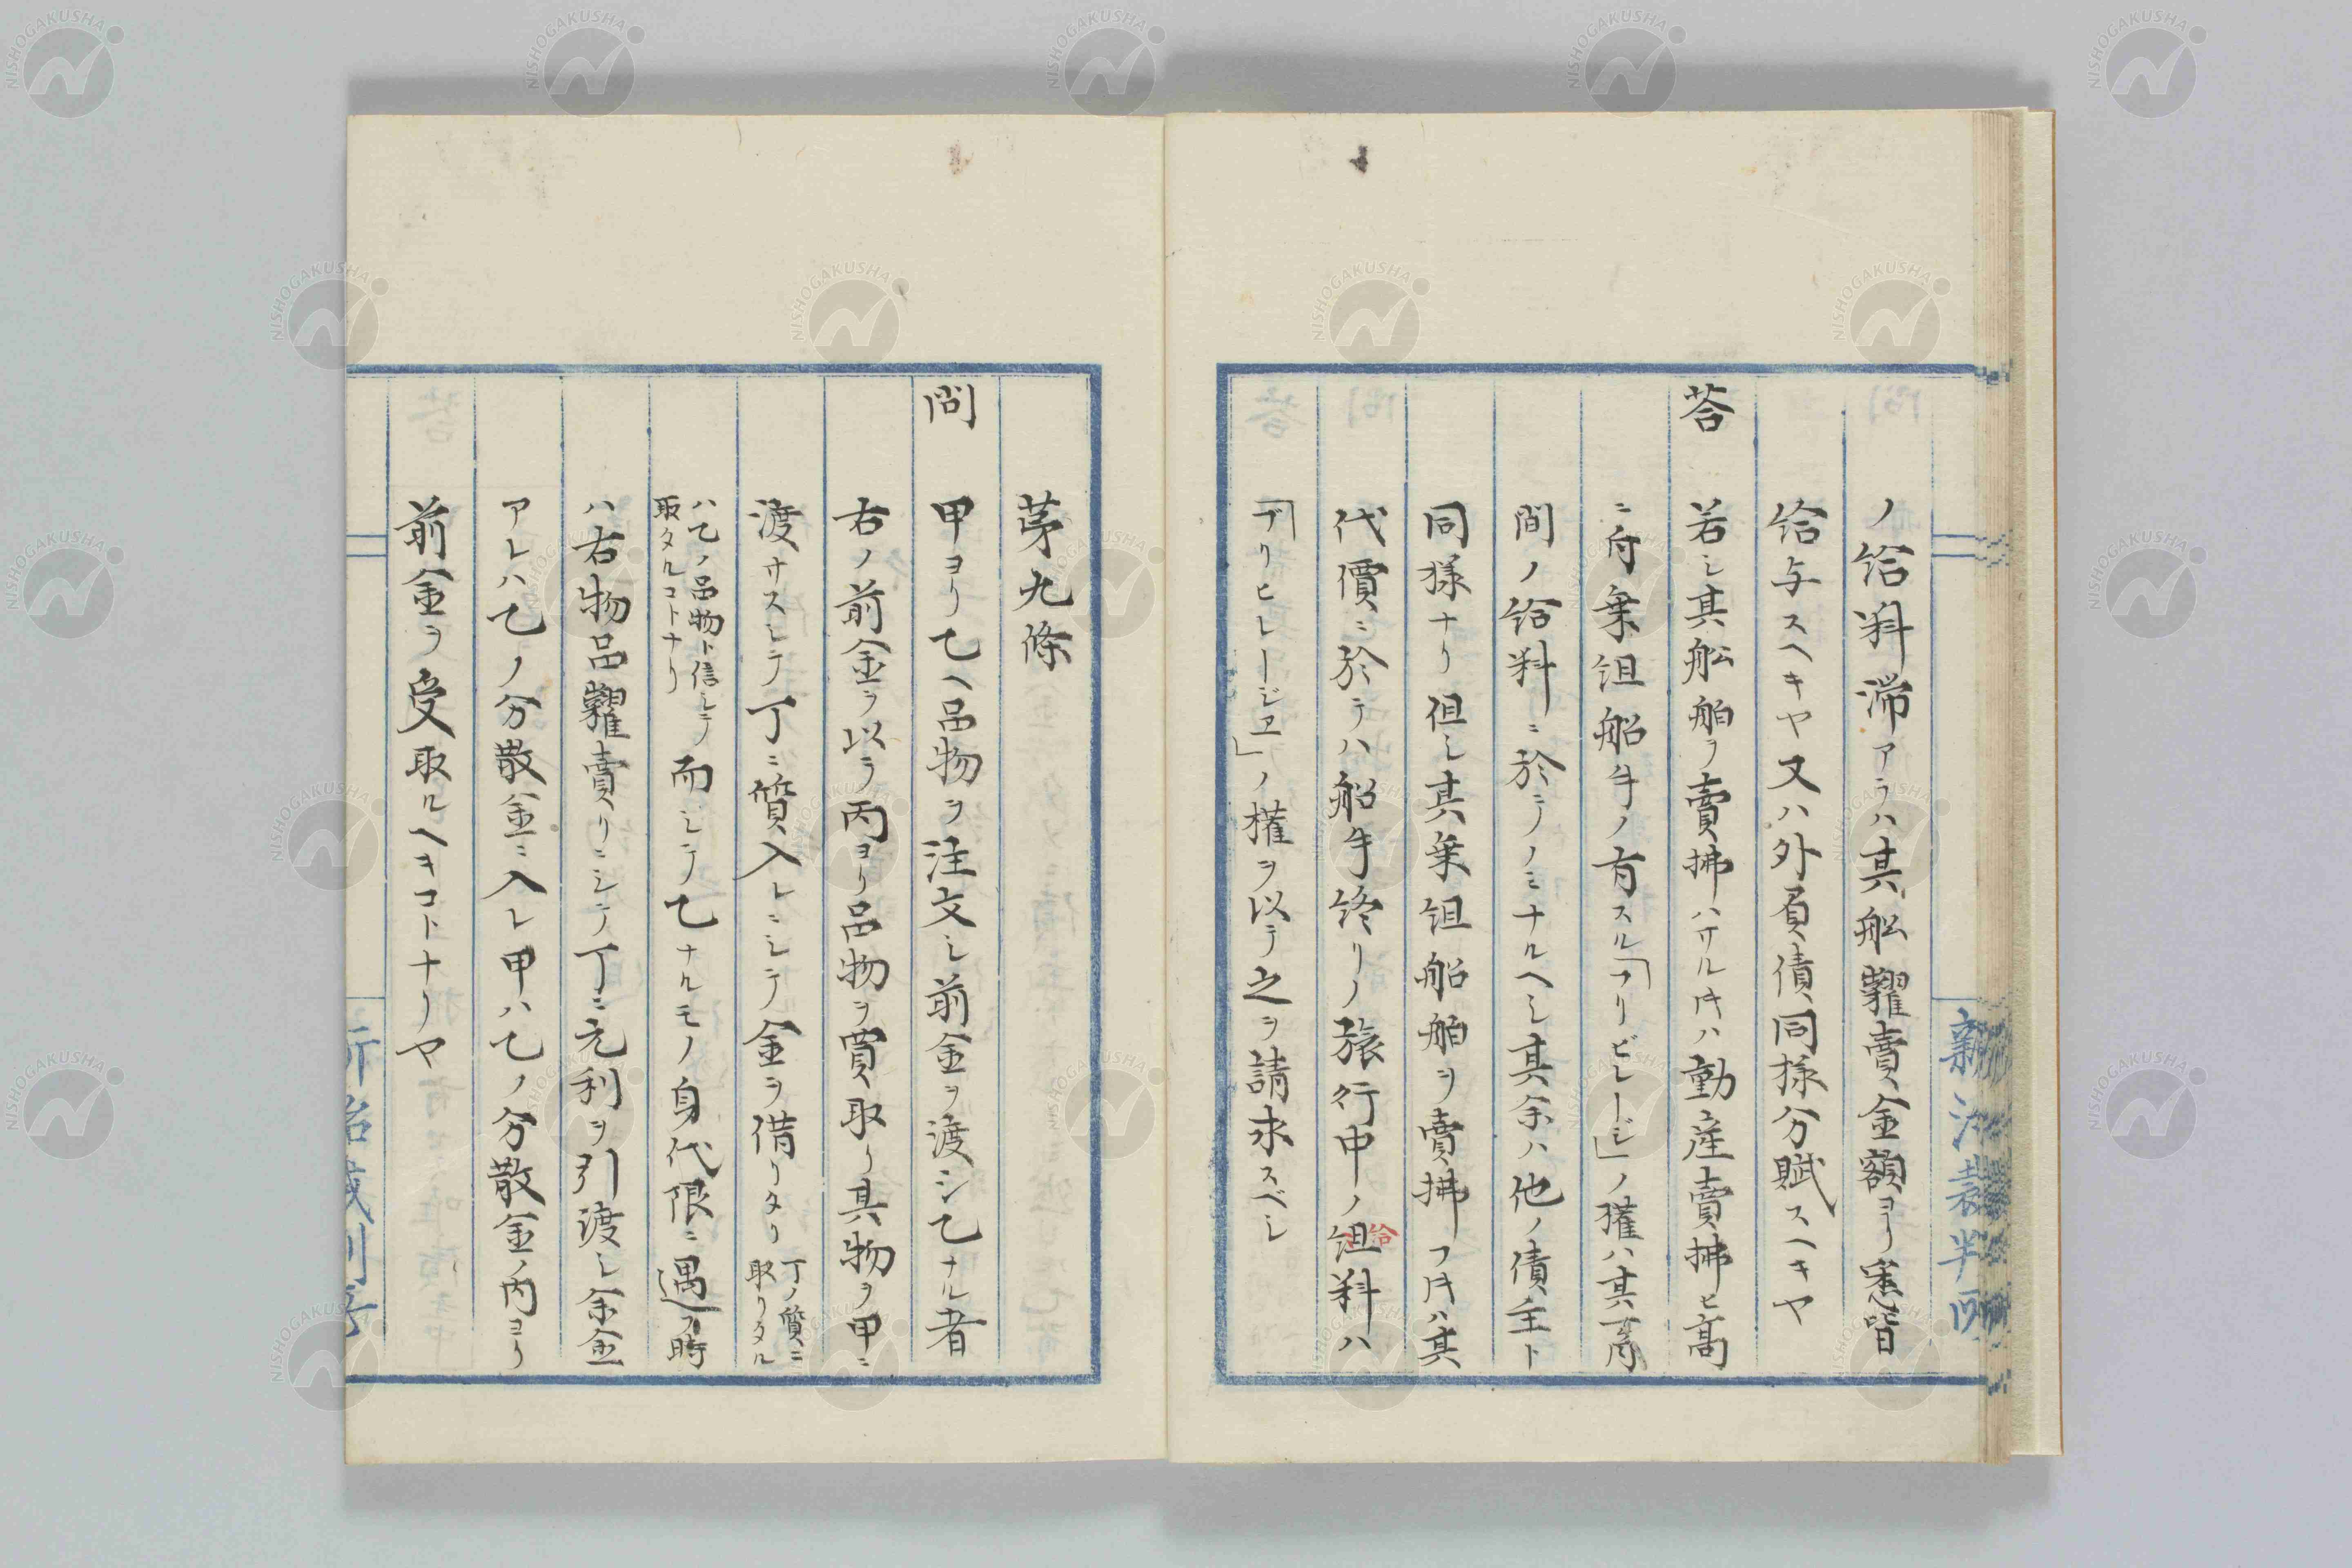 ノ給料滞アラハ其舩糶賣金額ヨリ悉皆
給与スヘキヤ又ハ外負債同様分賦スヘキヤ
答 若シ其舩舶ヲ賣拂ハサル片ハ動産賣拂ヒ髙
ニ付乗組船手ノ有スル「プリビレージ」ノ權ハ其
間ノ給料ニ於テノミナルヘシ其余ハ他ノ債主ト
同様ナリ但シ其乗組船舶ヲ賣拂フ片ハ其
代價ニ於テハ船手終リノ旅行中ノ組料ハ
給
「プリヒレージヱ」ノ權ヲ以テ之ヲ請求スベシ
第九條
問 甲ヨリ乙ヘ品物ヲ注文シ前金ヲ渡シ乙ナル者
右ノ前金ヲ以テ丙ヨリ品物ヲ買取リ其物ヲ甲ニ
渡サスシテ丁ニ質入レニシテ金ヲ借リタリ丁ノ質ニ
取リタル
ハ乙ノ品物ト信シテ
取タルコトナリ而シテ乙ナルモノ身代限ニ遇フ時
ハ右物品糶賣リニシテ丁ニ元利ヲ引渡シ余金
アレハ乙ノ分散金ニ入レ甲ハ乙ノ分散金ノ内ヨリ
前金ヲ受取ルヘキコトナリヤ
NISHOGAKUSHA